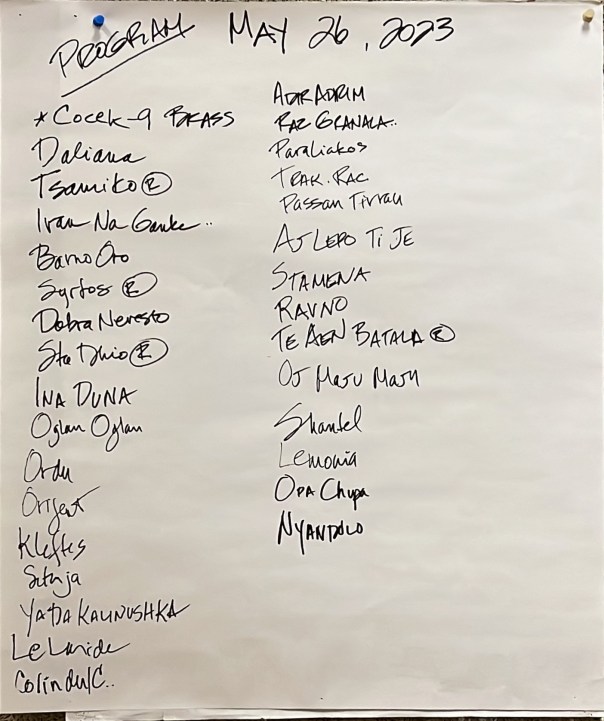 PROGRAM MAY 26, 2023
* Cocek-9 BRASS
Daliana
Tsamiko Ⓡ
Ivan Na Ganke..
Barno Oro
Syrtos Ⓡ
Dobra Nevesto
Sta Dhio Ⓡ
INA DUNA
Oglan Oglan
Ordu
Kleftes
Sitnja
YATDA KALINUSHKA
Colindul C..
ADRADRIM
RAZGRANALA..
Paraliakos
TRAK. RAC.
Passan Tivrau
AJ LEPO TI JE
STAMENA
RAVNO
TE AEN BATALA Ⓡ
OJ Maru Maru
Shantel
Lemonia
OPA Chupa